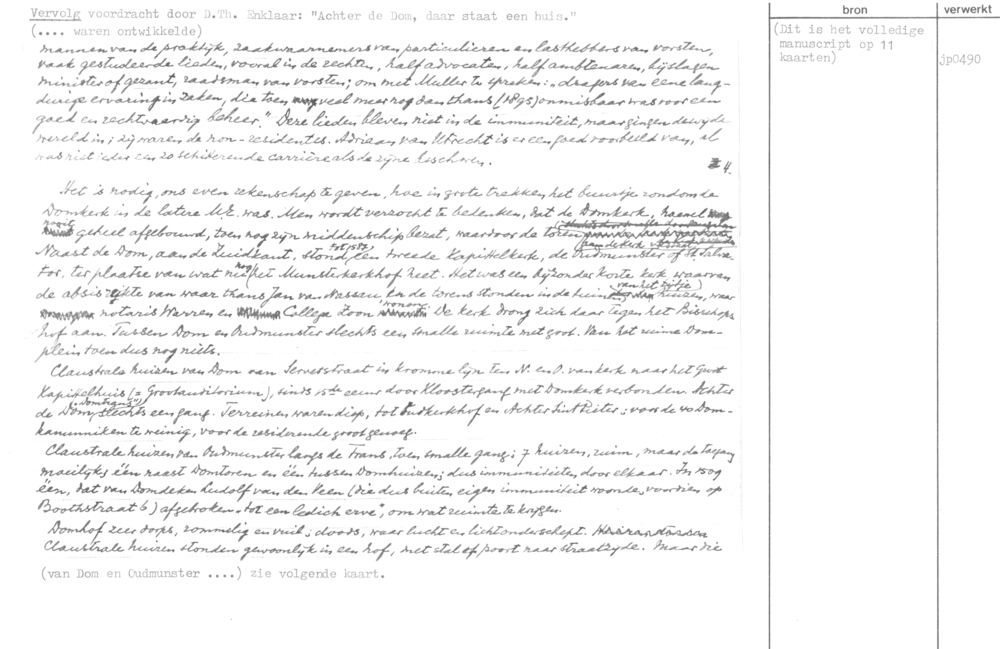 Vervolg voordracht door D.Th. Enklaar: "Achter de Dom, daar staat een huis."
(.... waren ontwikkelde)
mannen van de praktijk, zaakwaarnemers van particulieren en lasthebbers van vorsten,
vaak gestudeerde lieden, vooral in de rechten, half advocaten, half ambtenaren, bijslagen
minister of gezant, raadsman van vorsten; om met Muller te spreken: "dragers van eene lang-
durige ervaring in zaken, die toen veel meer nog dan thans (1895) onmisbaar was voor een
goed en rechtvaardig beheer." Deze lieden bleven niet in de immuniteit, maar gingen de wijde
wereld in; zij waren de non-residentes. Adriaan van Utrecht is er een goed voorbeeld van, al
was niet ieder een zo schitterende carrière als de zijne beschoren.
4.
Het is nodig, ons even rekenschap te geven, hoe in grote trekken het buurtje rondom de
Domkerk in de latere ME. was. Men wordt verzocht te bedenken, dat de Domkerk, hoewel
nooit geheel afgebouwd, toen nog zijn middenschip bezat, waardoor de toren
aan de kerk
Naast de Dom, aan de Zuidkant, stond tot 1587 een tweede Kapittelkerk, de Oudmunster of St. Salva-
tor, ter plaatse van wat nu nog het Munsterkerkhof heet. Het was een bijzonder korte kerk waarvan
de absis reikte van waar thans Jan van Nassau, en de torens stonden in de tuin van het rijtje huizen, waar
notaris Warren en College Loon wonen. De kerk drong zich daar tegen het Bisschops
hof aan. Tussen Dom en Oudmunster slechts een smalle ruimte met goot. Van het ruime Dom-
plein toen dus nog niets.
Claustrale huizen van Dom van Servetstraat in kromme lijn ten N. en O. van kerk naar het Groot
Kapittelhuis (= Grootauditorium), sinds 15de eeuw door Kloostergang met Domkerk verbonden. Achter
de Dom, "Domtrans" slechts een gang. Terreinen waren diep, tot Oudkerkhof en Achter Sint Pieter; voor de 40 Dom-
kanunniken te weinig, voor de residerende groot genoeg.
Claustrale huizen van Oudmunster langs de Trans, toen smalle gang; 7 huizen, ruim, maar de toegang
moeilijk; één naast Domtoren en één tussen Domhuizen; dus immuniteiten door elkaar. In 1509
één, dat van Domdeken Ludolf van den Veen (die dus buiten eigen immuniteit woonde, voordien op
Boothstraat 6) afgebroken "tot een ledich erve", om wat ruimte te krijgen.
Domhof zeer dorps, rommelig en vuil; doods, waar lucht en licht onderschept.
Claustrale huizen stonden gewoonlijk in een hof, met stal of poort naar straatzijde. Maar die
(van Dom en Oudmunster ....) zie volgende kaart.
bron
(Dit is het volledige
manuscript op 11
kaarten)
verwerkt
jp0490